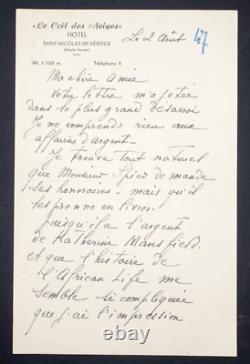 «Le Crêt des Neiges»
HOTEL
SAINT-NICOLAS-DE-VÉROCE
(Haute-Savoie)
Alt. 1.100 m. Téléphone 5
Le 2 Août 47
Ma chère Amie
Votre lettre m'a jetée
dans le plus grand désarroi
Je ne comprends rien aux
affaires d'argent.
Je trouve tout naturel
que Monsieur demande
ses honoraires - mais qu'il
les prenne en livres-
puisqu'il a l'argent
de Katherine Mansfield.
et que l'histoire de
l'African Life me
semble si compliquée
que j'ai l'impression